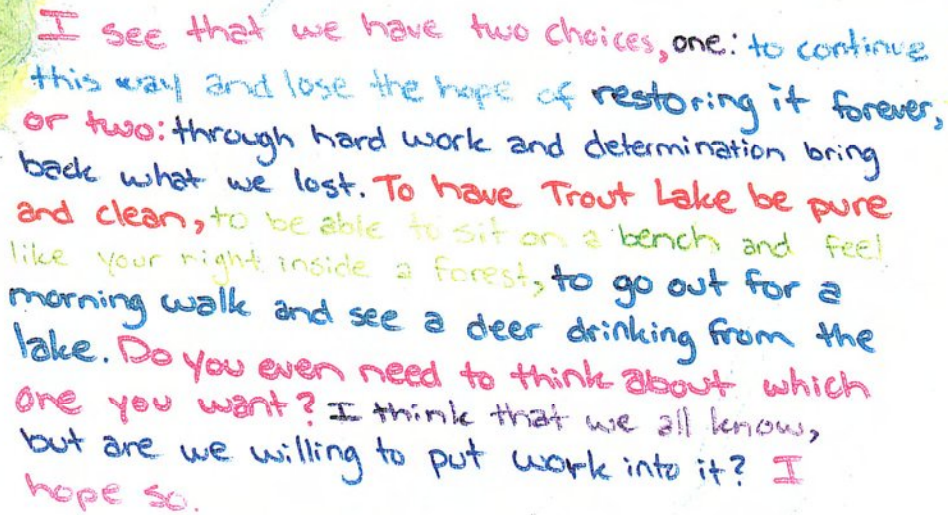 I see that we have two choices, one: to continue
this way and lose the hope of restoring it forever,
or two: through hard work and determination bring
back what we lost. To have Trout Lake be pure
and clean, to be able to sit on a bench and feel
like your right inside a forest, to go out for a
morning walk and see a deer drinking from the
lake. Do you even need to think about which
one you want? I think that we all know,
but are we willing to put work into it? I
hope so.